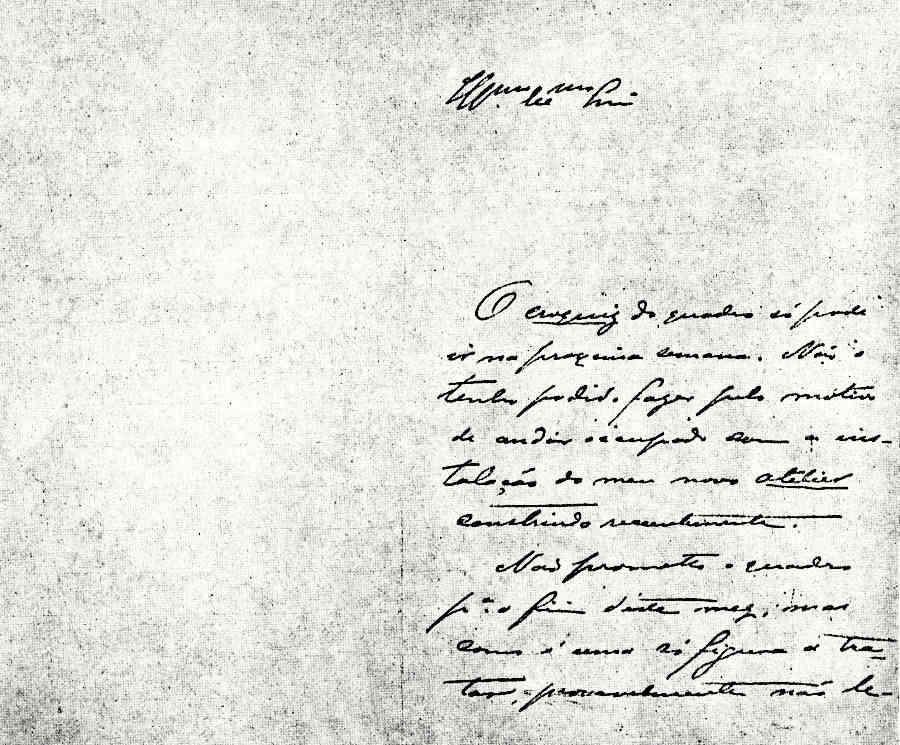 O croquiz do quadro só pode
ir na proxima semana. Não o
tenho podido fazer pelo motivo
de andar occupado com a ins-
talação do meu novo atelier
construido recentemente.
Não prometto o quadro
pª o fim d'este mez; mas
como é uma só figura a tra-
tar, provavelmente não le-